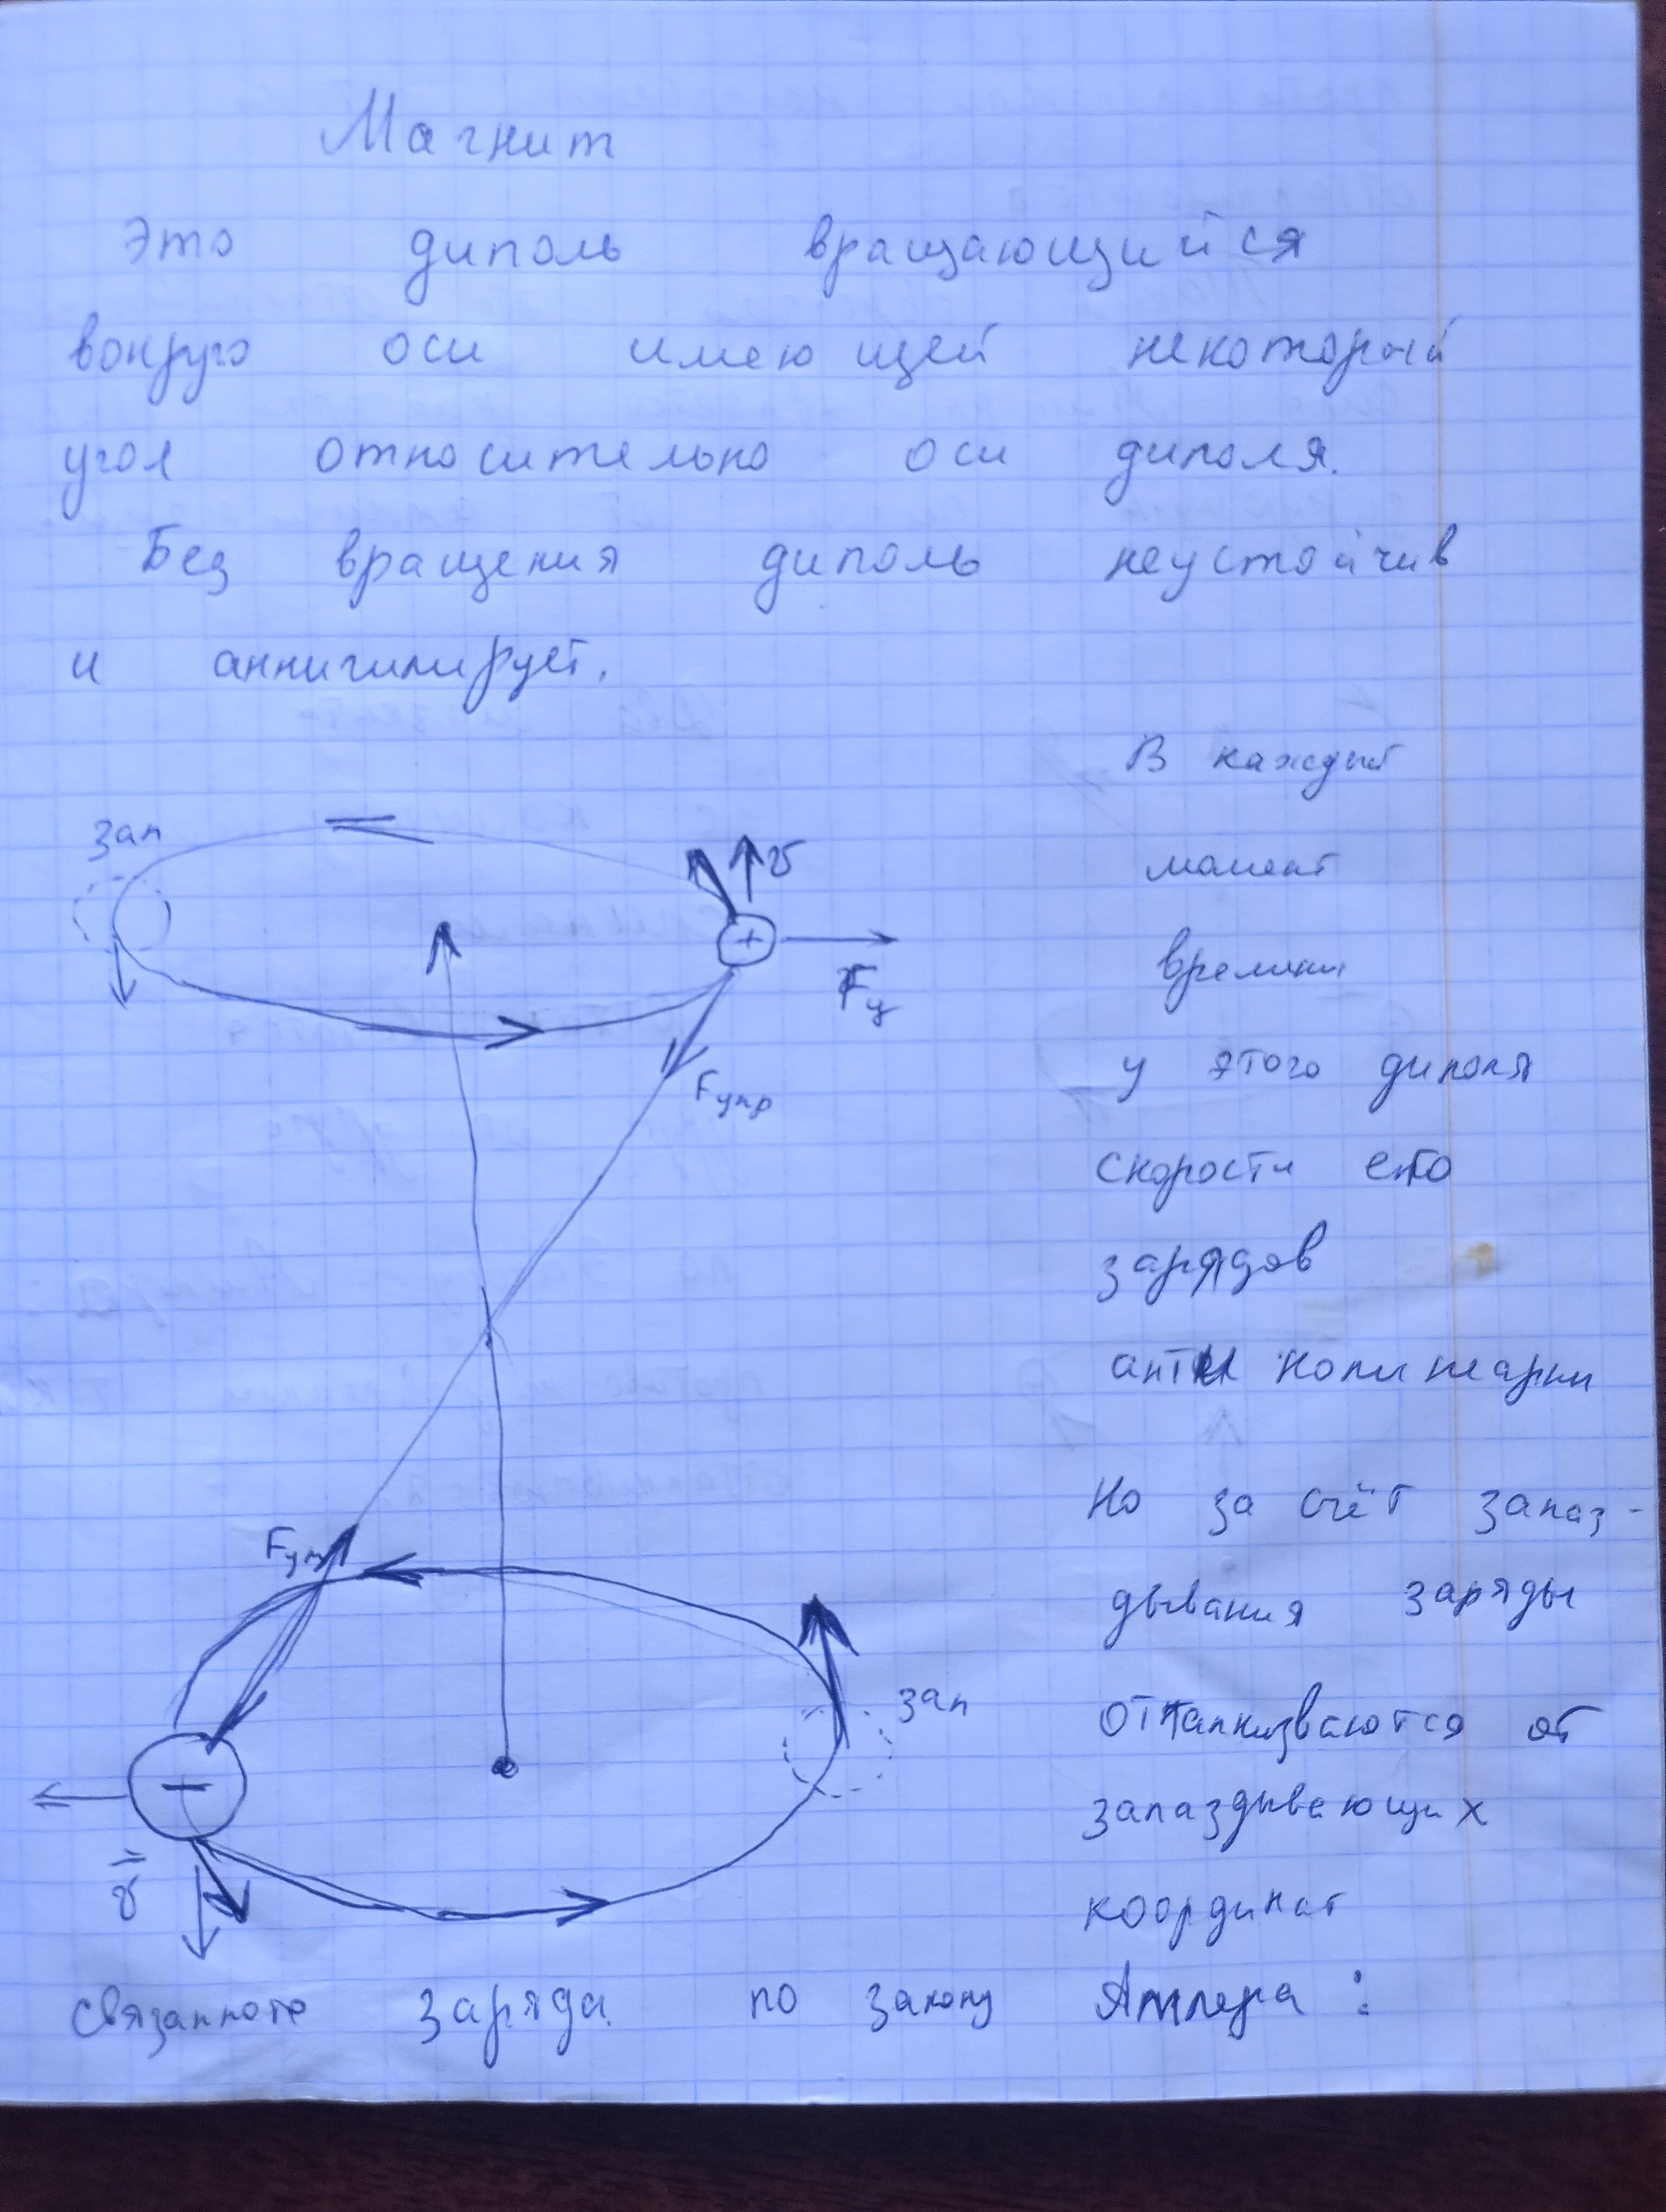 Магнит
Это диполь вращающийся
вокруг оси имеющей некоторый
угол относительно оси диполя.
Без вращения диполь неустойчив
и аннигилирует.
В каждый
зап
v
момент
Fц
времини
Fупр
у этого диполя
скорости его
зарядов
анти колинеарны
Но за счёт запаз-
Fуп
дывания заряды
зап
отталкизваются от
запаздывающих
v
координат
Связанного заряда по закону Ампера: